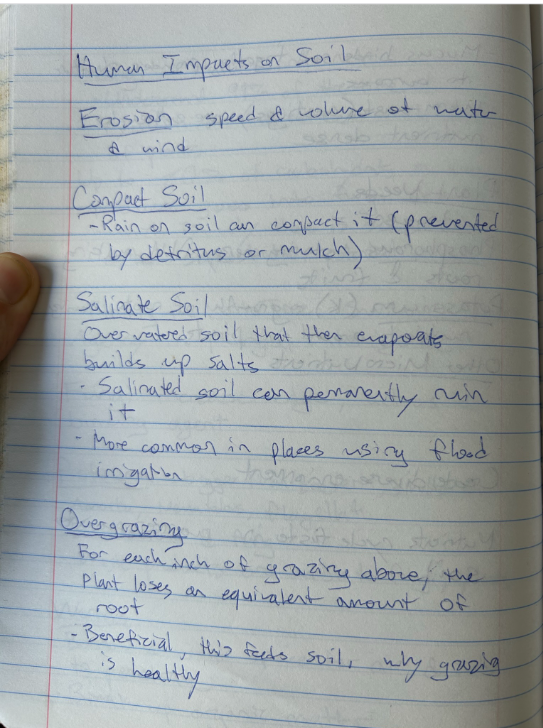 Human Impacts on Soil
Erosion speed & volume of water
& wind
Compact Soil
- Rain on soil can compact it (prevented
by detritus or mulch)
Salinate Soil
Over watered soil that then evaporates
builds up salts
- Salinated soil can permanently ruin
it
- More common in places using flood
irrigation
Overgrazing
For each inch of grazing above, the
plant loses an equivalent amount of
root
- Beneficial, this feeds soil, why grazing
is healthy